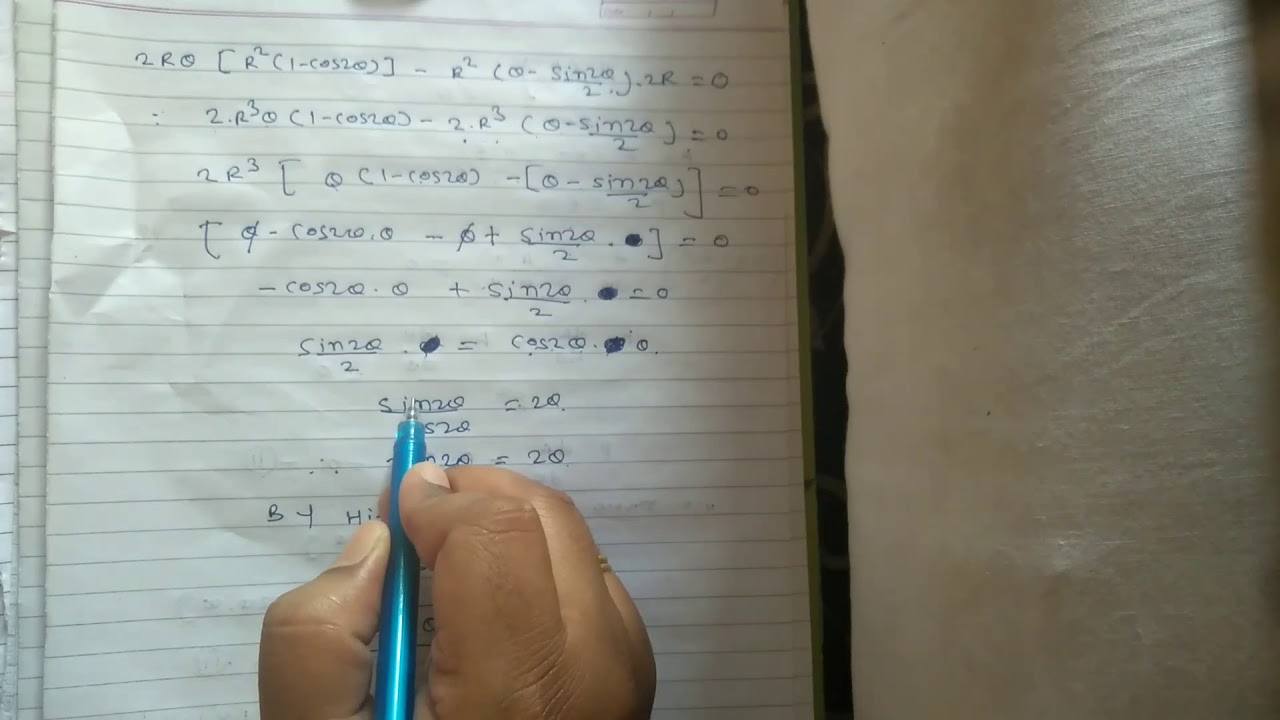 2Rθ [R²(1-cos2θ)] - R² (θ - sin2θ/2).2R = 0
∴ 2.R³θ(1-cos2θ) - 2.R³ (θ - sin2θ/2) = 0
2R³ [ θ(1-cos2θ) - [θ - sin2θ/2)] = 0
[θ - cos2θ.θ - θ + sin2θ/2 . ] = 0
- cos2θ.θ + sin2θ/2 . = 0
sin2θ/2 . = cos2θ. θ.
sin2θ/ s2θ = 2θ.
∴ n2θ = 2θ.
BY